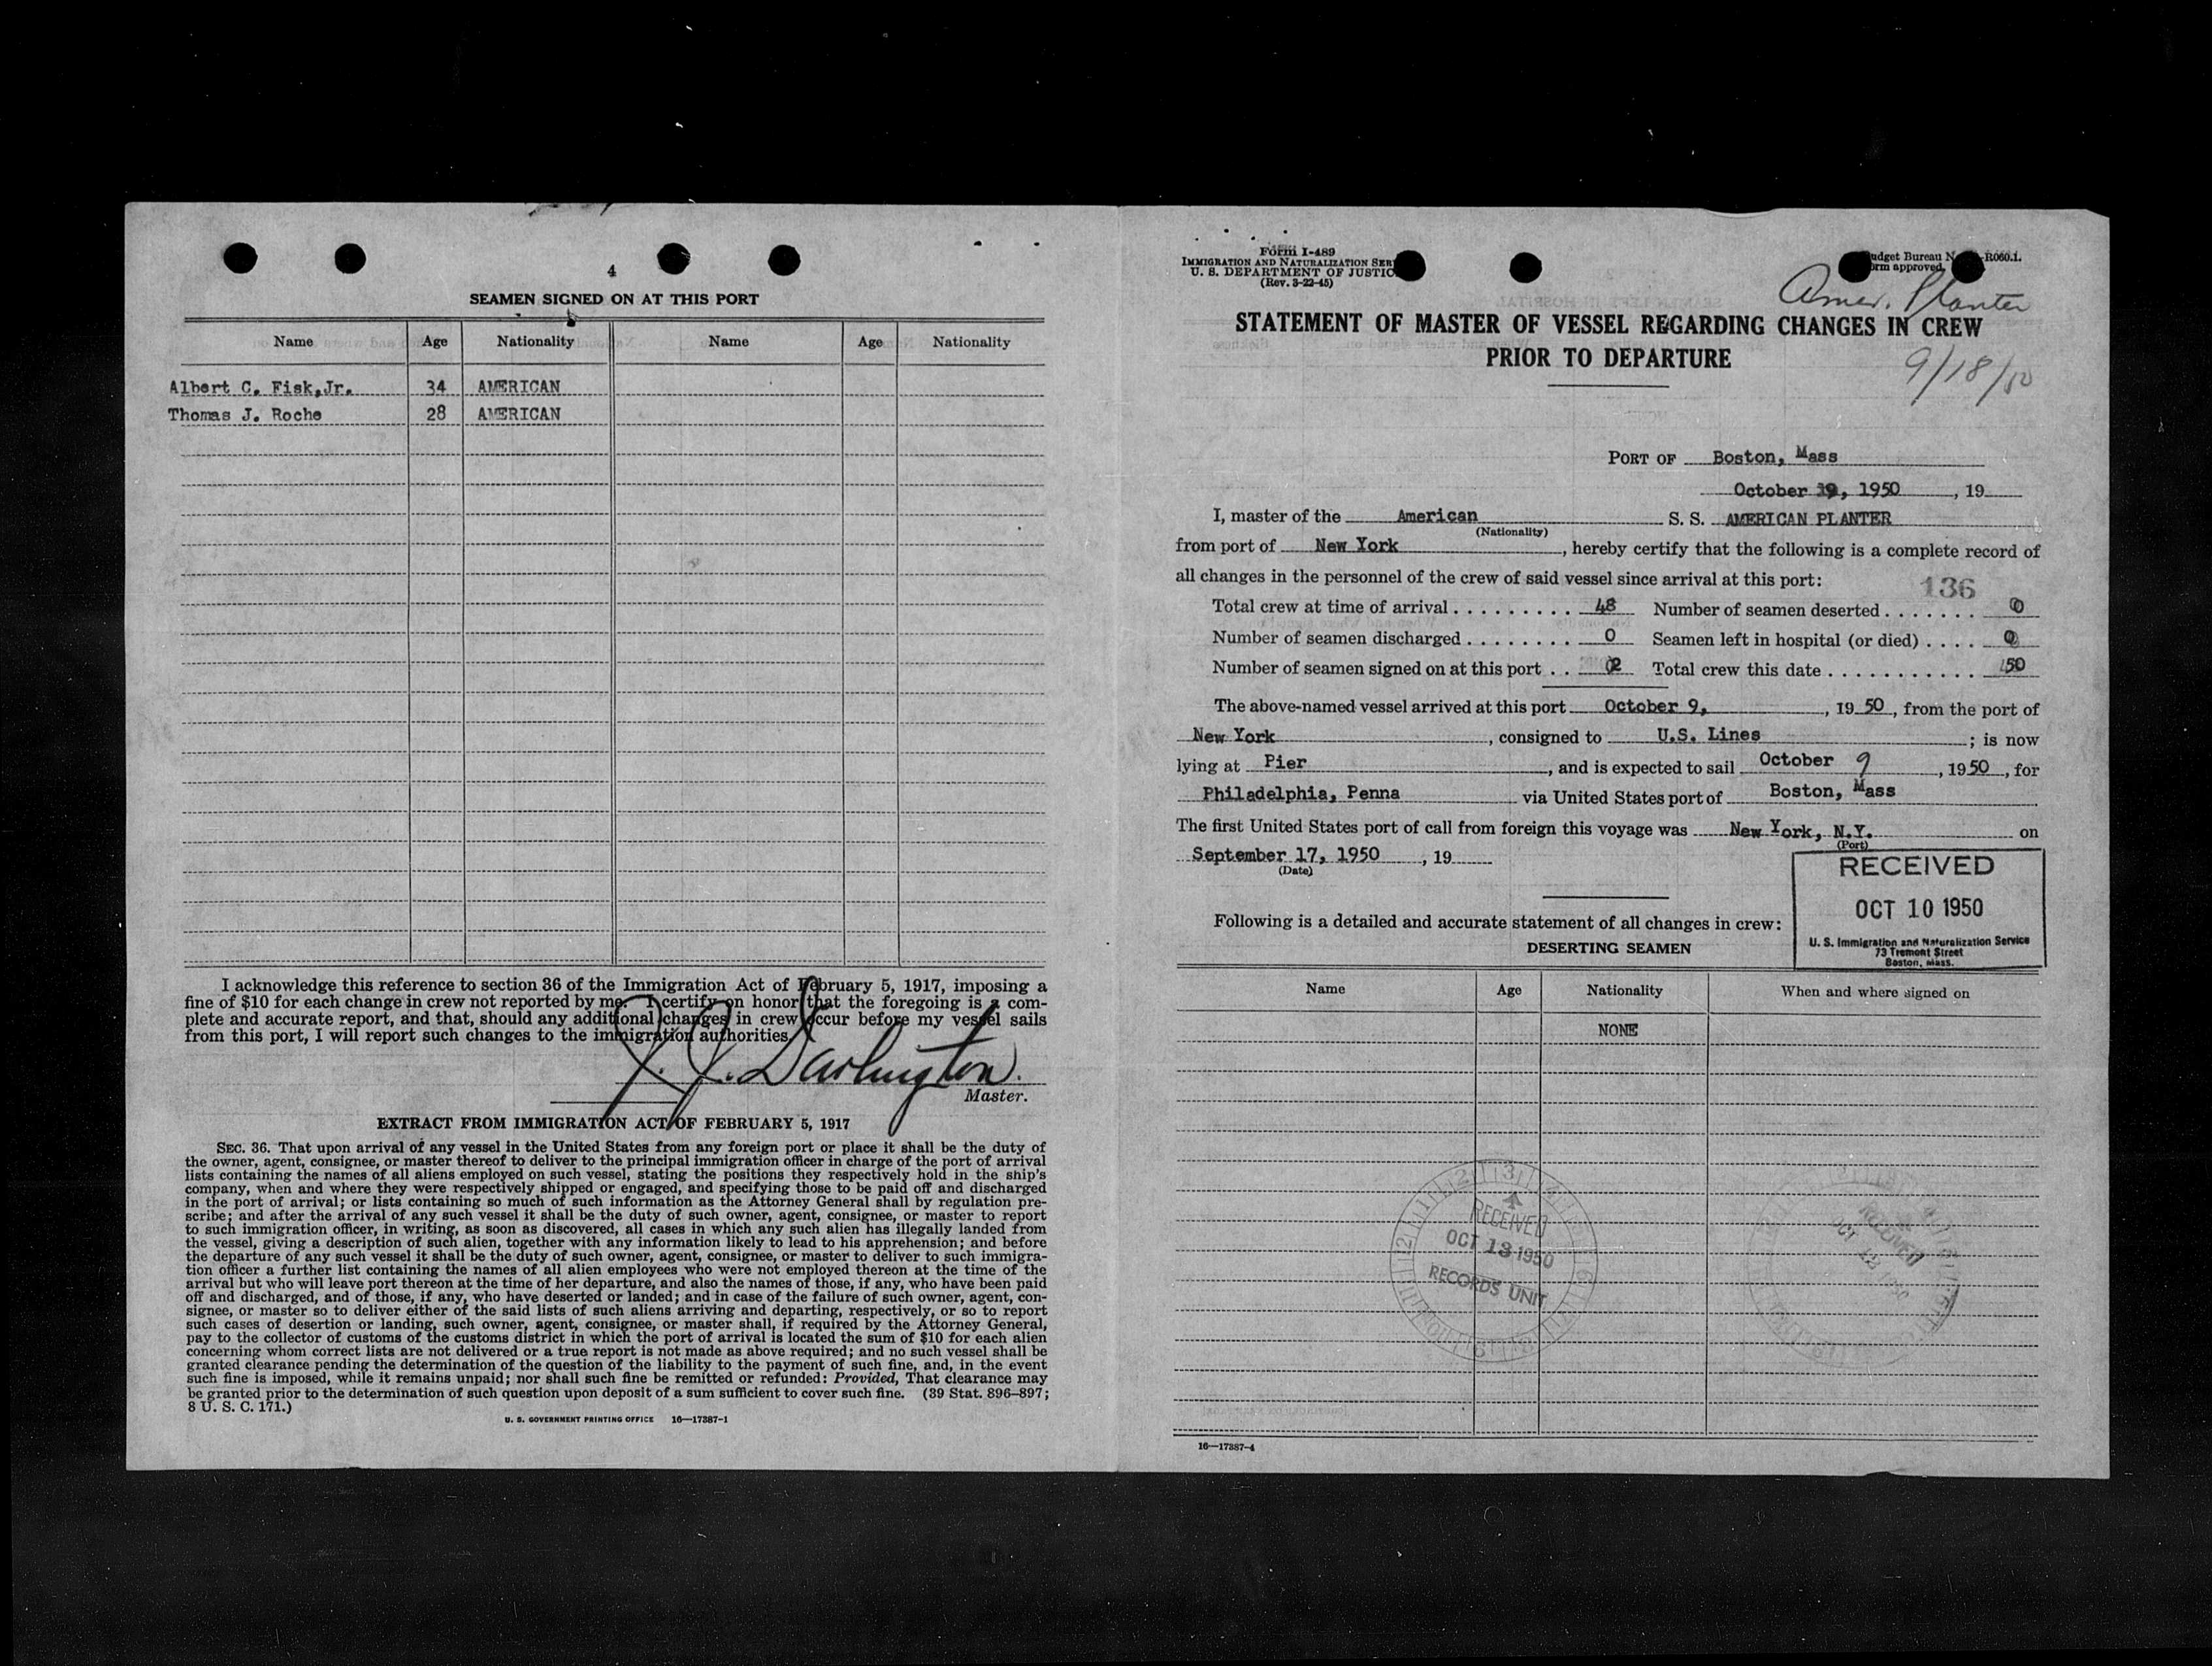 4
SEAMEN SIGNED ON AT THIS PORT
Name Age Nationality Name Age Nationality
Albert C. Fisk, Jr. 34 AMERICAN
Thomas J. Roche 28 AMERICAN
I acknowledge this reference to section 36 of the Immigration Act of February 5, 1917, imposing a
fine of $10 for each change in crew not reported by me. I certify on honor that the foregoing is a com-
plete and accurate report, and that, should any additional changes in crew occur before my vessel sails
from this port, I will report such changes to the immigration authorities.
J. J. Darlington.
Master.
EXTRACT FROM IMMIGRATION ACT OF FEBRUARY 5, 1917
SEC. 36. That upon arrival of any vessel in the United States from any foreign port or place it shall be the duty of
the owner, agent, consignee, or master thereof to deliver to the principal immigration officer in charge of the port of arrival
lists containing the names of all aliens employed on such vessel, stating the positions they respectively hold in the ship's
company, when and where they were respectively shipped or engaged, and specifying those to be paid off and discharged
in the port of arrival; or lists containing so much of such information as the Attorney General shall by regulation pre-
scribe; and after the arrival of any such vessel it shall be the duty of such owner, agent, consignee, or master to report
to such immigration officer, in writing, as soon as discovered, all cases in which any such alien has illegally landed from
the vessel, giving a description of such alien, together with any information likely to lead to his apprehension; and before
the departure of any such vessel it shall be the duty of such owner, agent, consignee, or master to deliver to such immigra-
tion officer a further list containing the names of all alien employees who were not employed thereon at the time of the
arrival but who will leave port thereon at the time of her departure, and also the names of those, if any, who have been paid
off and discharged, and of those, if any, who have deserted or landed; and in case of the failure of such owner, agent, con-
signee, or master so to deliver either of the said lists of such aliens arriving and departing, respectively, or so to report
such cases of desertion or landing, such owner, agent, consignee, or master shall, if required by the Attorney General,
pay to the collector of customs of the customs district in which the port of arrival is located the sum of $10 for each alien
concerning whom correct lists are not delivered or a true report is not made as above required; and no such vessel shall be
granted clearance pending the determination of the question of the liability to the payment of such fine, and, in the event
such fine is imposed, while it remains unpaid; nor shall such fine be remitted or refunded: Provided, That clearance may
be granted prior to the determination of such question upon deposit of a sum sufficient to cover such fine. (39 Stat. 896–897;
8 U. S. C. 171.)
U. S. GOVERNMENT PRINTING OFFICE 16—17387-1
Form I-489
IMMIGRATION AND NATURALIZATION SER
U. S. DEPARTMENT OF JUSTIC
(Rev. 3-22-45)
udget Bureau N -R060.1.
orm approved.
Amer. Planter
STATEMENT OF MASTER OF VESSEL REGARDING CHANGES IN CREW
PRIOR TO DEPARTURE
9/18/50
PORT OF Boston, Mass
October 9, 1950, 19
I, master of the American S. S. AMERICAN PLANTER
(Nationality)
from port of New York, hereby certify that the following is a complete record of
all changes in the personnel of the crew of said vessel since arrival at this port:
136
Total crew at time of arrival . . . . . . . . . 48 Number of seamen deserted . . . . . . . 0
Number of seamen discharged . . . . . . . . 0 Seamen left in hospital (or died) . . . . 0
Number of seamen signed on at this port . . 2 Total crew this date . . . . . . . . . . . 50
The above-named vessel arrived at this port October 9, 1950, from the port of
New York, consigned to U.S. Lines; is now
lying at Pier, and is expected to sail October 9, 1950, for
Philadelphia, Penna via United States port of Boston, Mass
The first United States port of call from foreign this voyage was New York, N.Y. on
(Port)
September 17, 1950, 19
(Date)
RECEIVED
OCT 10 1950
U. S. Immigration and Naturalization Service
73 Tremont Street
Boston, Mass.
Following is a detailed and accurate statement of all changes in crew:
DESERTING SEAMEN
Name Age Nationality When and where signed on
NONE
RECEIVED
OCT 13 1950
RECORDS UNIT
RECEIVED
16—17387-4